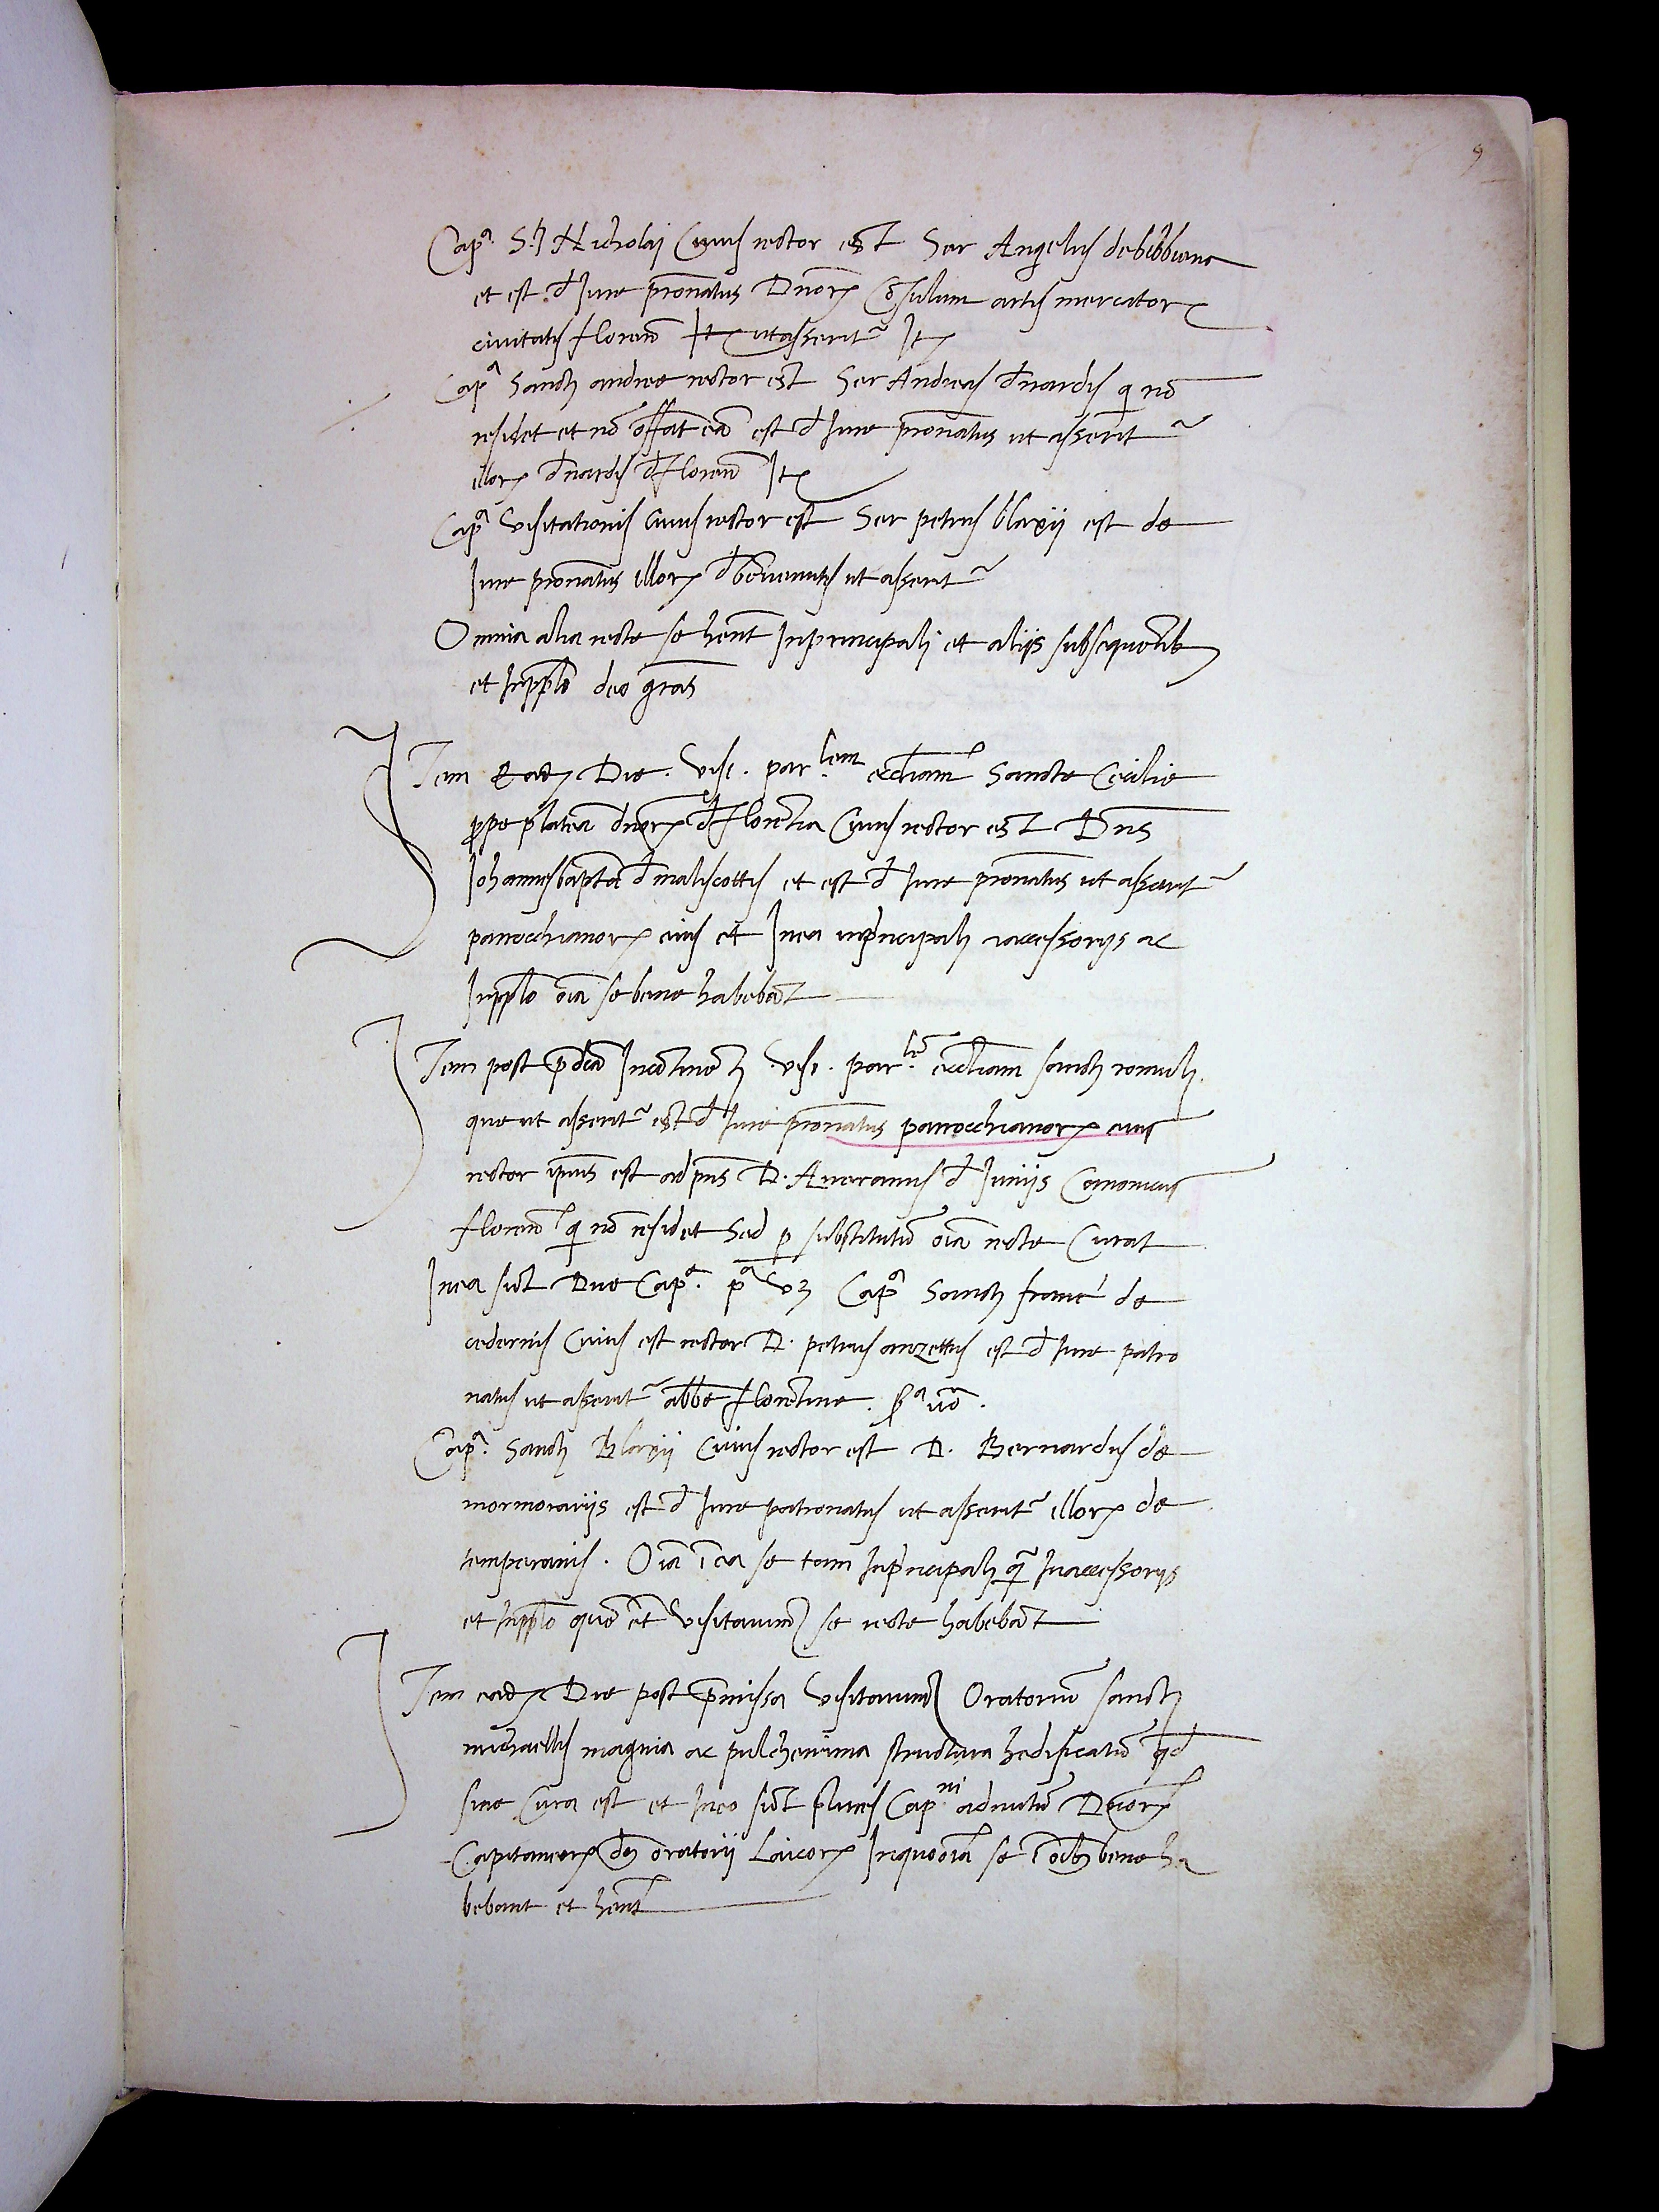 9
Capª. S.ti Nicholaj Cuius rector est Ser Angelus de bibbiena
et est d Iure pronatus Dnorꝝ Cōsulum artis mercatorꝝ
ciuitatis floren̄ utasserit̃
Capª Sancti andree rector est Ser Andreas d nardis q nō
residet et nō offat eā est d Iure pronatus ut asserit̃
illorꝝ d nardis d Floren̄
Capª Visitationis Cuius rector est Ser petrus blaxij est de
Iure pronatus illorꝝ d ut asserit̃
Omnia alia recte se hent Inprincipali et alijs subsequētib
et Inpplo deo gras
Item Eadꝫ Die. Visi. parlem ecclīam Sancte Cecilie
ꝓpe plateā dnorꝝ d Florentia Cuius rector est Dns
Iohannesbaptā d maliscottis et est d Iure pronatus ut asserit̃
parocchianorꝝ eius et Inea inprīncipali accessorijs ac
Inpplo oīa se bene habebāt
Item post pdcā Incōtinēti Visi. parlē. ecclīam sancti romuli
que ut asserit̃ est d Iure pronatus parocchianorꝝ cuius
rector ipīus est adpns D. Aueranus d Iunijs Canonicus
floren̄ q nō residet Sed p substitutū oīa recte Curat
Inea sūt Due Capᵉ. pª vꝫ Capª Sancti franc' de
cedernis Cuius est rector D. petrus anzettus est d Iure patro
natus ut asserit̃ abbē Florētine. Sª uō.
Capª. Sancti Blaxij Cuius rector est D. Bernardus de
mormorarijs est d Iure patronatus ut asserit̃ illorꝝ de
temperanis. Oīa ī ea se tam Inprīncipali q̄ Inaccessorijs
et Inpplo quē et Visitauim9 se recte habebāt
Item eadꝫ Die post pmissa Visitauim9 Oratoriū sancti
michaellis magna ac pulcherrima structura hedificatū qd
sine Cura est et Ineo sūt plures Cap.ni adnutū Dnorꝝ
Capitaneorꝝ dci oratorij Laicorꝝ Inquo oīa se ī oībꝫ bene ha
bebant et hent